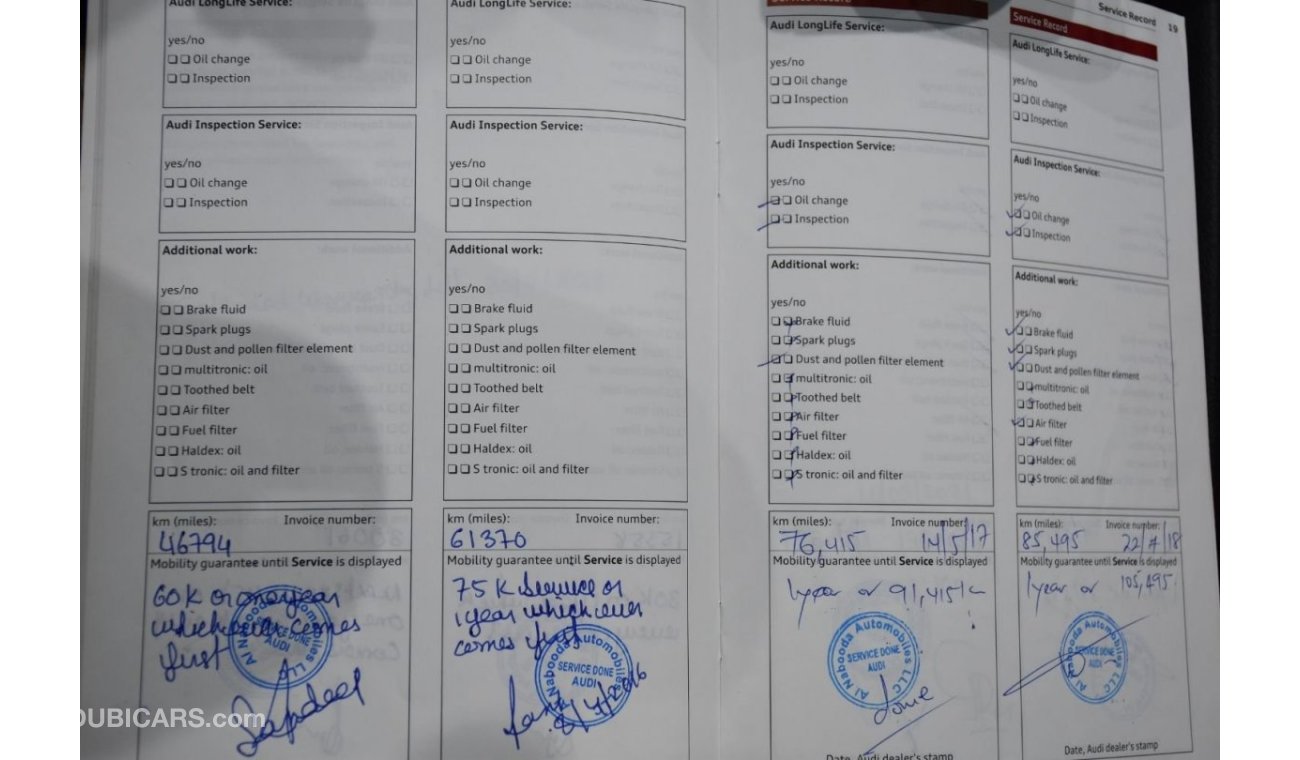 Service Record 19
Audi LongLife Service:
yes/no
Oil change
Inspection
Audi Inspection Service:
yes/no
Oil change
Inspection
Additional work:
yes/no
Brake fluid
Spark plugs
Dust and pollen filter element
multitronic: oil
Toothed belt
Air filter
Fuel filter
Haldex: oil
S tronic: oil and filter
km (miles): Invoice number:
46794
Mobility guarantee until Service is displayed
60K or one year
which ever comes
first
Al Nabooda Automobiles LLC
SERVICE DONE
AUDI
DUBICARS.com
Audi LongLife Service:
yes/no
Oil change
Inspection
Audi Inspection Service:
yes/no
Oil change
Inspection
Additional work:
yes/no
Brake fluid
Spark plugs
Dust and pollen filter element
multitronic: oil
Toothed belt
Air filter
Fuel filter
Haldex: oil
S tronic: oil and filter
km (miles): Invoice number:
61370
Mobility guarantee until Service is displayed
75 K Service or
1year which ever
comes first
Al Nabooda Automobiles LLC
SERVICE DONE
AUDI
Service Record
Audi LongLife Service:
yes/no
Oil change
Inspection
Audi Inspection Service:
yes/no
Oil change
Inspection
Additional work:
yes/no
Brake fluid
Spark plugs
Dust and pollen filter element
multitronic: oil
Toothed belt
Air filter
Fuel filter
Haldex: oil
S tronic: oil and filter
km (miles): Invoice number:
76,415 14/5/17
Mobility guarantee until Service is displayed
1year or 91,415k
Al Nabooda Automobiles LLC
SERVICE DONE
AUDI
done
Date, Audi dealer's stamp
Service Record
Audi LongLife Service:
yes/no
Oil change
Inspection
Audi Inspection Service:
yes/no
Oil change
Inspection
Additional work:
yes/no
Brake fluid
Spark plugs
Dust and pollen filter element
multitronic: oil
Toothed belt
Air filter
Fuel filter
Haldex: oil
S tronic: oil and filter
km (miles): Invoice number:
85,495 22/4/18
Mobility guarantee until Service is displayed
1year or 105,495
Al Nabooda Automobiles LLC
SERVICE DONE
AUDI
Date, Audi dealer's stamp